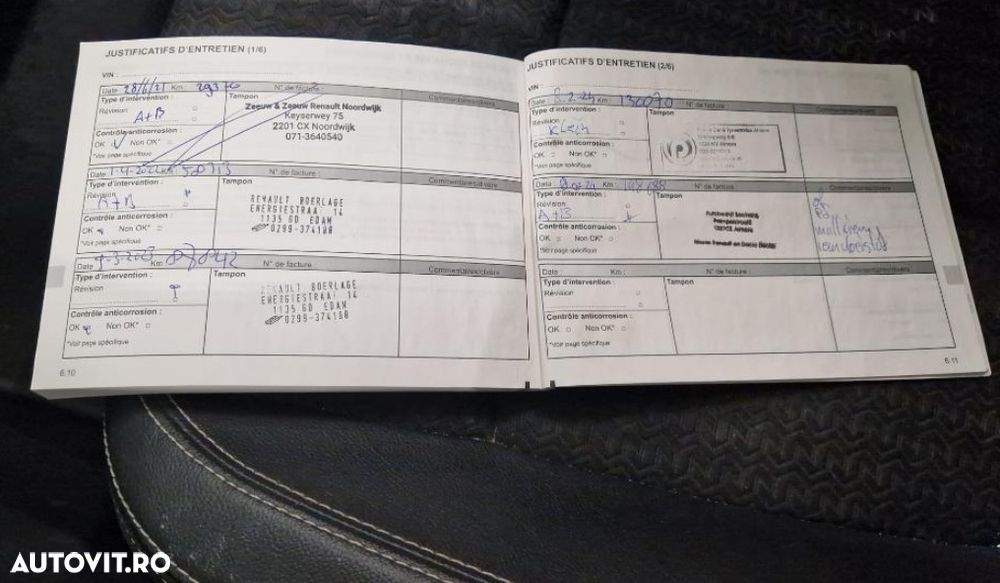 JUSTIFICATIFS D'ENTRETIEN (1/6)
VIN :
Date 28/6/21 Km : N° de facture
Type d'intervention : Tampon Commentaires/divers
Révision
A+B
Zeeuw & Zeeuw Renault Noordwijk
Keyserwey 75
2201 CX Noordwijk
071-3640540
Contrôle anticorrosion :
OK Non OK*
*Voir page spécifique
Date Km N° de facture :
Type d'intervention : Tampon Commentaires/divers
Révision
A+B
RENAULT BOERLAGE
ENERGIESTRAAT 14
1135 GD EDAM
0299-374108
Contrôle anticorrosion :
OK Non OK*
*Voir page spécifique
Date 9-3-2023 Km N° de facture
Type d'intervention : Tampon Commentaires/divers
Révision
RENAULT BOERLAGE
ENERGIESTRAAT 14
1135 GD EDAM
0299-374108
Contrôle anticorrosion :
OK Non OK*
*Voir page spécifique
6.10
JUSTIFICATIFS D'ENTRETIEN (2/6)
VIN :
Date 8-2-24 Km 130070 N° de facture
Type d'intervention : Tampon Commentaires/divers
Révision
Contrôle anticorrosion :
OK Non OK*
*Voir page spécifique
Date Km : N° de facture
Type d'intervention : Tampon Commentaires/divers
Révision
A+B
Contrôle anticorrosion :
OK Non OK*
*Voir page spécifique
Date : Km : N° de facture
Type d'intervention : Tampon Commentaires/divers
Révision
Contrôle anticorrosion :
OK Non OK*
*Voir page spécifique
6.11
AUTOVIT.RO